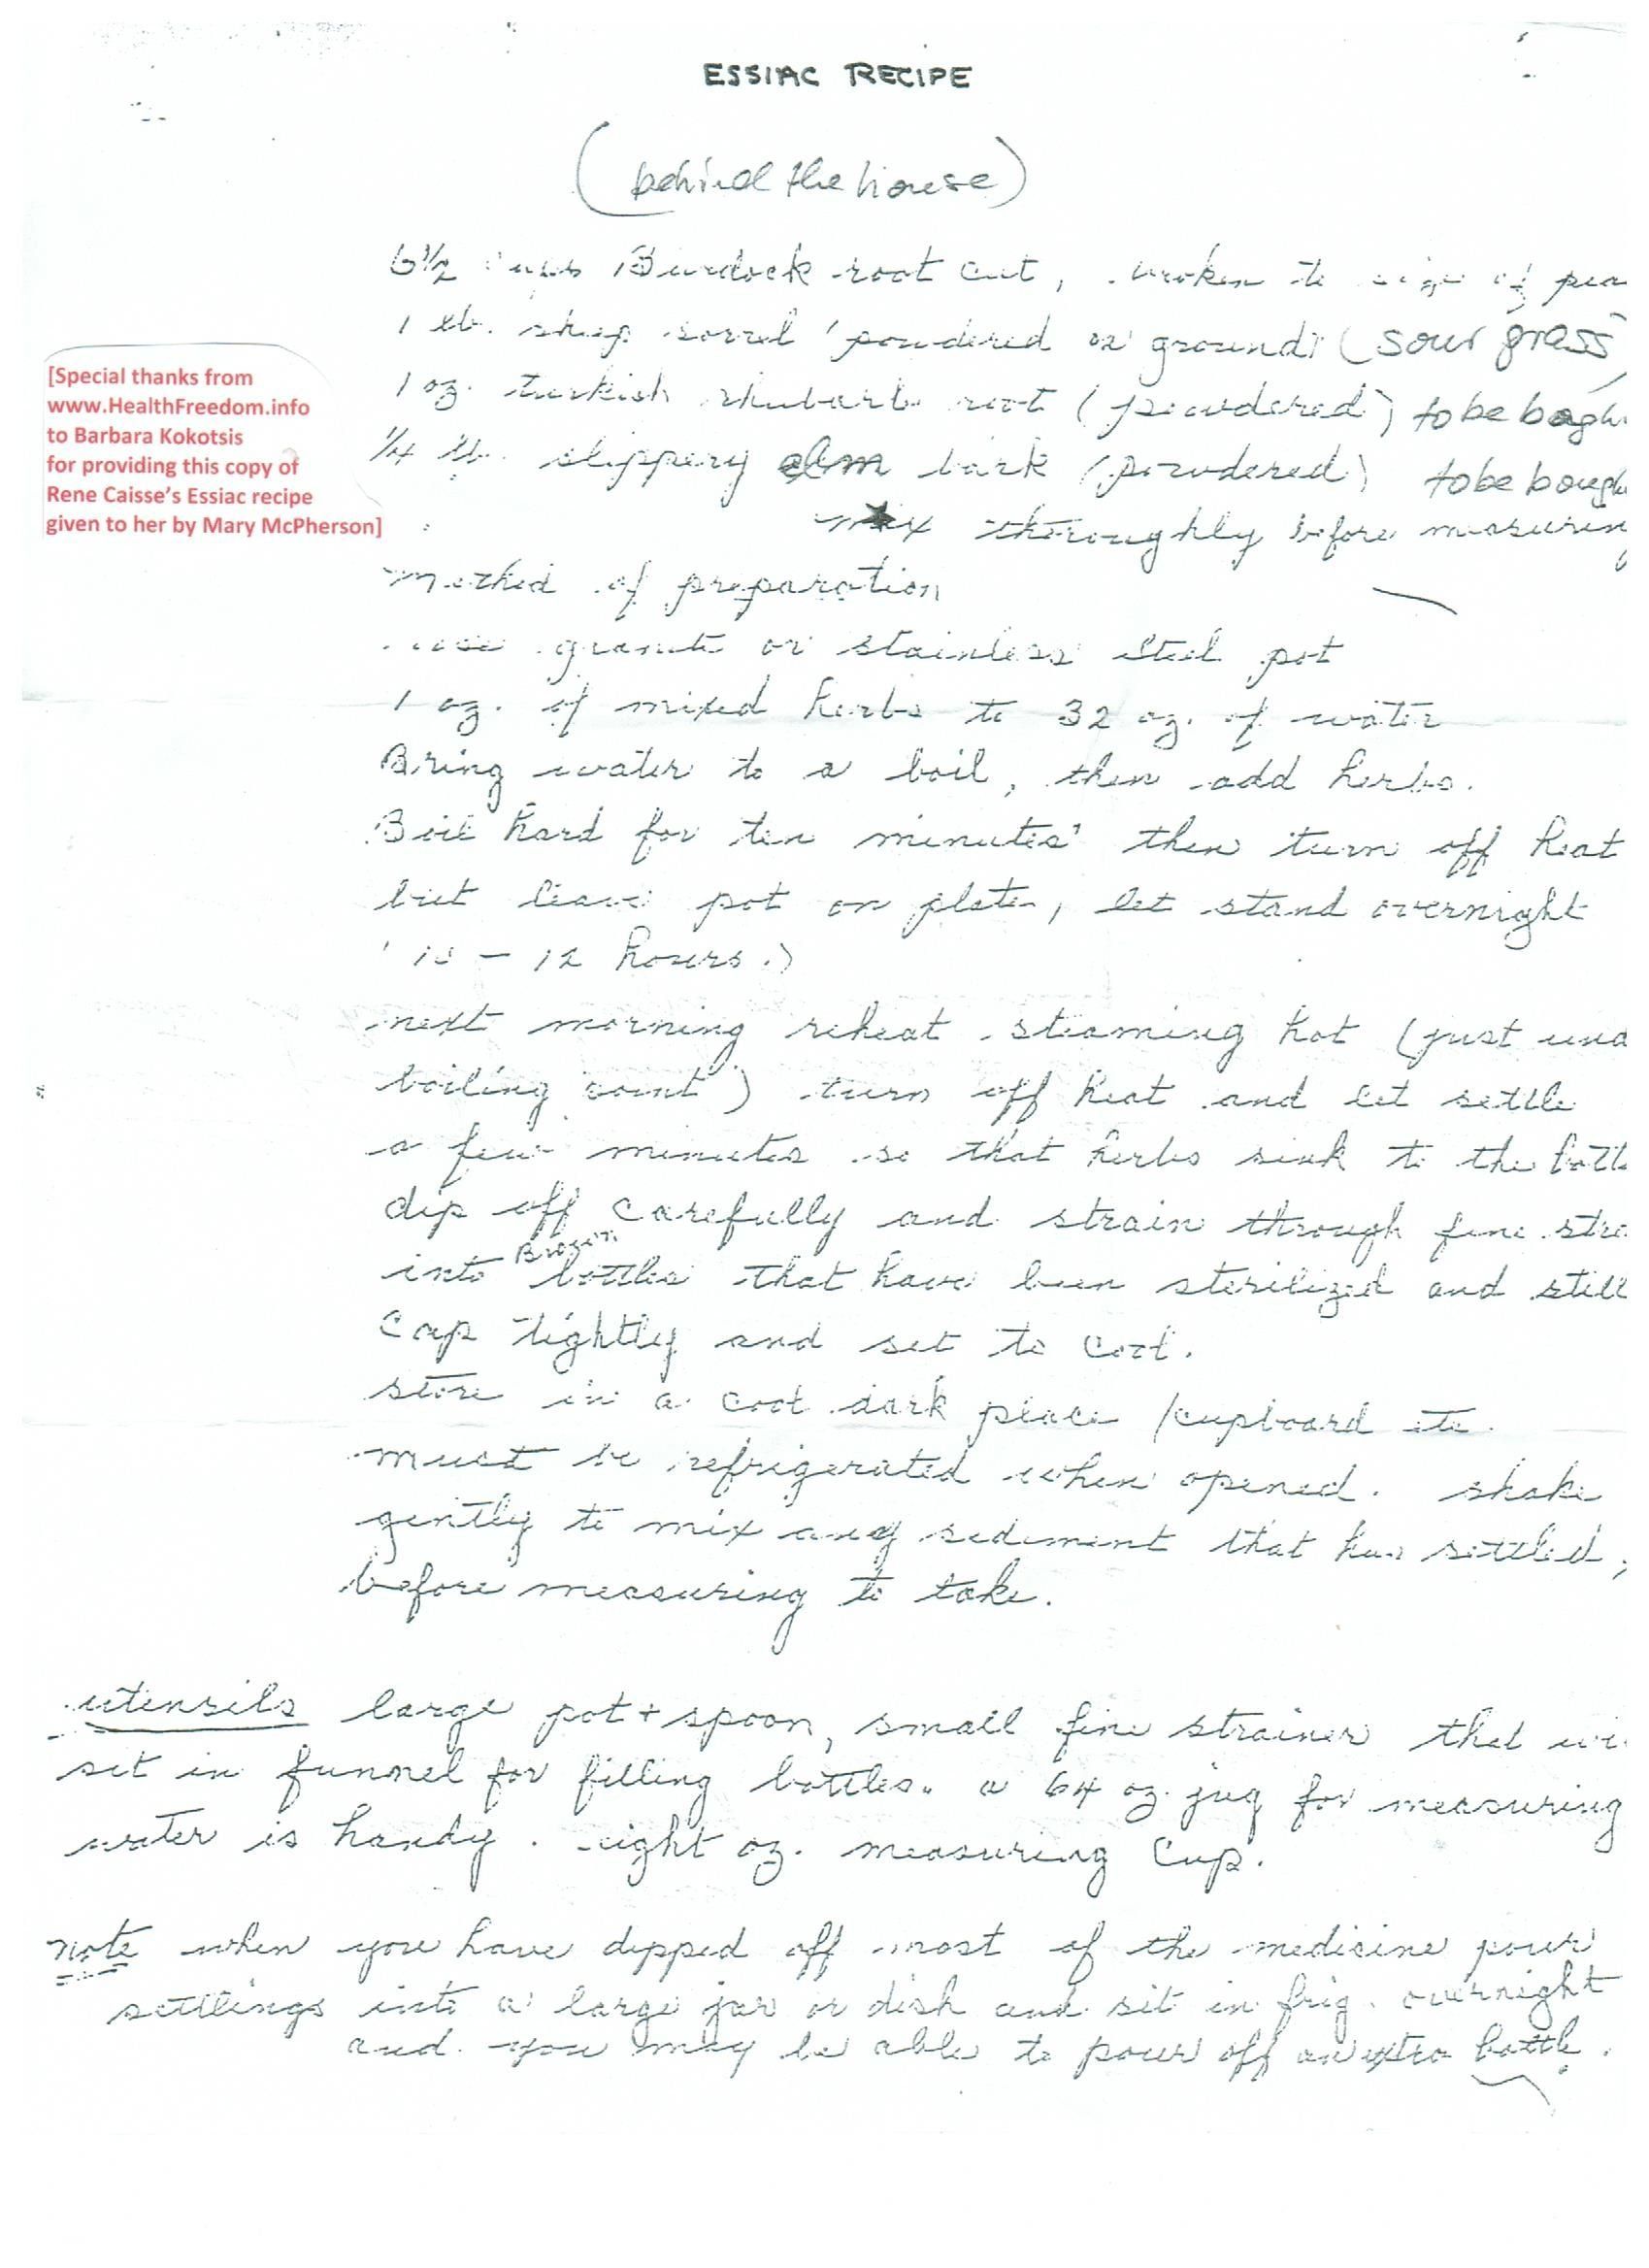 ESSIAC RECIPE
(behind the house)
6½ cups Burdock root cut, broken to size of pea
1 lb. sheep sorrel powdered or ground (sour grass)
1 oz. turkish rhubarb root (powdered) to be bough
¼ lb. slippery elm bark (powdered) to be bough
mix thoroughly before measuring
[Special thanks from
www.HealthFreedom.info
to Barbara Kokotsis
for providing this copy of
Rene Caisse's Essiac recipe
given to her by Mary McPherson]
Method of preparation
use granite or stainless steel pot
1 oz. of mixed herbs to 32 oz. of water
Bring water to a boil, then add herbs.
Boil hard for ten minutes then turn off heat
but leave pot on plate, let stand overnight
10 - 12 hours.)
next morning reheat steaming hot (just und
boiling point) turn off heat and let settle
a few minutes so that herbs sink to the bott
dip off carefully and strain through fine stra
into Brown bottles that have been sterilized and still
Cap tightly and set to cool.
store in a cool dark place /cupboard etc.
must be refrigerated when opened. shake
gently to mix any sediment that has settled,
before measuring to take.
utensils large pot + spoon, small fine strainer that wi
sit in funnel for filling bottles. a 64 oz. jug for measuring
water is handy. eight oz. measuring cup.
note when you have dipped off most of the medicine pour
settlings into a large jar or dish and sit in frig. overnight
and you may be able to pour off an extra bottle.